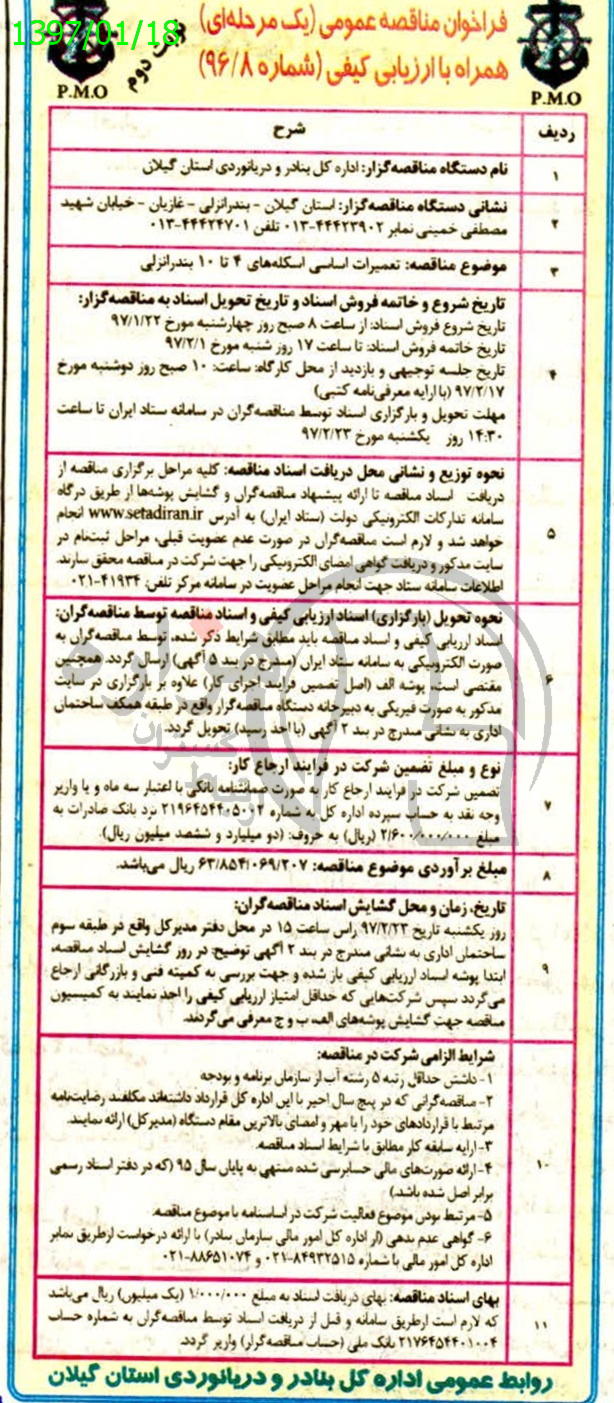 1397/01/18
فراخوان مناقصه عمومی (یک مرحله‌ای)
همراه با ارزیابی کیفی (شماره ۹۶/۸)
نوبت دوم
P.M.O
P.M.O
ردیف
شرح
۱
نام دستگاه مناقصه‌گزار: اداره کل بنادر و دریانوردی استان گیلان
۲
نشانی دستگاه مناقصه‌گزار: استان گیلان - بندرانزلی - غازیان - خیابان شهید
مصطفی خمینی نمابر ۴۴۴۲۳۹۰۲-۰۱۳ تلفن ۴۴۴۲۴۷۰۱-۰۱۳
۳
موضوع مناقصه: تعمیرات اساسی اسکله‌های ۴ تا ۱۰ بندرانزلی
۴
تاریخ شروع و خاتمه فروش اسناد و تاریخ تحویل اسناد به مناقصه‌گزار:
تاریخ شروع فروش اسناد: از ساعت ۸ صبح روز چهارشنبه مورخ ۹۷/۱/۲۲
تاریخ خاتمه فروش اسناد: تا ساعت ۱۷ روز شنبه مورخ ۹۷/۲/۱
تاریخ جلسه توجیهی و بازدید از محل کارگاه: ساعت: ۱۰ صبح روز دوشنبه مورخ
۹۷/۲/۱۷ (با ارایه معرفی‌نامه کتبی)
مهلت تحویل و بارگزاری اسناد توسط مناقصه‌گران در سامانه ستاد ایران تا ساعت
۱۴:۳۰ روز یکشنبه مورخ ۹۷/۲/۲۳
۵
نحوه توزیع و نشانی محل دریافت اسناد مناقصه: کلیه مراحل برگزاری مناقصه از
دریافت اسناد مناقصه تا ارائه پیشنهاد مناقصه‌گران و گشایش پوشه‌ها از طریق درگاه
سامانه تدارکات الکترونیکی دولت (ستاد ایران) به آدرس www.setadiran.ir انجام
خواهد شد و لازم است مناقصه‌گران در صورت عدم عضویت قبلی، مراحل ثبت‌نام در
سایت مذکور و دریافت گواهی امضای الکترونیکی را جهت شرکت در مناقصه محقق سازند.
اطلاعات سامانه ستاد جهت انجام مراحل عضویت در سامانه مرکز تلفن: ۴۱۹۳۴-۰۲۱
۶
نحوه تحویل (بارگزاری) اسناد ارزیابی کیفی و اسناد مناقصه توسط مناقصه‌گران:
اسناد ارزیابی کیفی و اسناد مناقصه باید مطابق شرایط ذکر شده، توسط مناقصه‌گران به
صورت الکترونیکی به سامانه ستاد ایران (مندرج در بند ۵ آگهی) ارسال گردد. همچنین
مقتضی است، پوشه الف (اصل تضمین فرایند اجرای کار) علاوه بر بارگزاری در سایت
مذکور به صورت فیزیکی به دبیرخانه دستگاه مناقصه‌گزار واقع در طبقه همکف ساختمان
اداری به نشانی مندرج در بند ۲ آگهی (با اخذ رسید) تحویل گردد.
۷
نوع و مبلغ تضمین شرکت در فرایند ارجاع کار:
تضمین شرکت در فرایند ارجاع کار به صورت ضمانتنامه بانکی با اعتبار سه ماه و یا واریز
وجه نقد به حساب سپرده اداره کل به شماره ۲۱۹۶۴۵۴۴۰۵۰۰۲ نزد بانک صادرات به
مبلغ ۲/۶۰۰/۰۰۰/۰۰۰ (ریال) به حروف: (دو میلیارد و ششصد میلیون ریال).
۸
مبلغ برآوردی موضوع مناقصه: ۶۳/۸۵۴/۰۶۹/۲۰۷ ریال می‌باشد.
۹
تاریخ، زمان و محل گشایش اسناد مناقصه‌گران:
روز یکشنبه تاریخ ۹۷/۲/۲۳ راس ساعت ۱۵ در محل دفتر مدیرکل واقع در طبقه سوم
ساختمان اداری به نشانی مندرج در بند ۲ آگهی توضیح: در روز گشایش اسناد مناقصه،
ابتدا پوشه اسناد ارزیابی کیفی باز شده و جهت بررسی به کمیته فنی و بازرگانی ارجاع
می‌گردد سپس شرکت‌هایی که حداقل امتیاز ارزیابی کیفی را اخذ نمایند به کمیسیون
مناقصه جهت گشایش پوشه‌های الف، ب و ج معرفی می‌گردند.
۱۰
شرایط الزامی شرکت در مناقصه:
۱- داشتن حداقل رتبه ۵ رشته آب از سازمان برنامه و بودجه
۲- مناقصه‌گرانی که در پنج سال اخیر با این اداره کل قرارداد داشته‌اند مکلفند رضایت‌نامه
مرتبط با قراردادهای خود را با مهر و امضای بالاترین مقام دستگاه (مدیر کل) ارائه نمایند.
۳- ارایه سابقه کار مطابق با شرایط اسناد مناقصه.
۴- ارائه صورت‌های مالی حسابرسی شده منتهی به پایان سال ۹۵ (که در دفتر اسناد رسمی
برابر اصل شده باشد.)
۵- مرتبط بودن موضوع فعالیت شرکت در اساسنامه با موضوع مناقصه.
۶- گواهی عدم بدهی (از اداره کل امور مالی سازمان بنادر) با ارائه درخواست ازطریق نمابر
اداره کل امور مالی با شماره ۸۴۹۳۲۵۱۵-۰۲۱ و ۸۸۶۵۱۰۷۴-۰۲۱
۱۱
بهای اسناد مناقصه: بهای دریافت اسناد به مبلغ ۱/۰۰۰/۰۰۰ (یک میلیون) ریال می‌باشد
که لازم است ازطریق سامانه و قبل از دریافت اسناد توسط مناقصه‌گران به شماره حساب
۲۱۷۶۴۵۴۴۰۱۰۰۴ بانک ملی (حساب مناقصه‌گزار) واریز گردد.
روابط عمومی اداره کل بنادر و دریانوردی استان گیلان